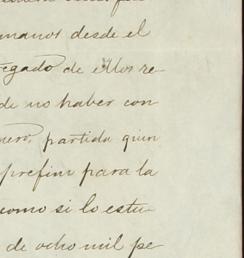 manos desde el
egado de ellos re-
de no haber con
nero, partida quin
prefini para la
como si lo estu-
de ocho mil pe